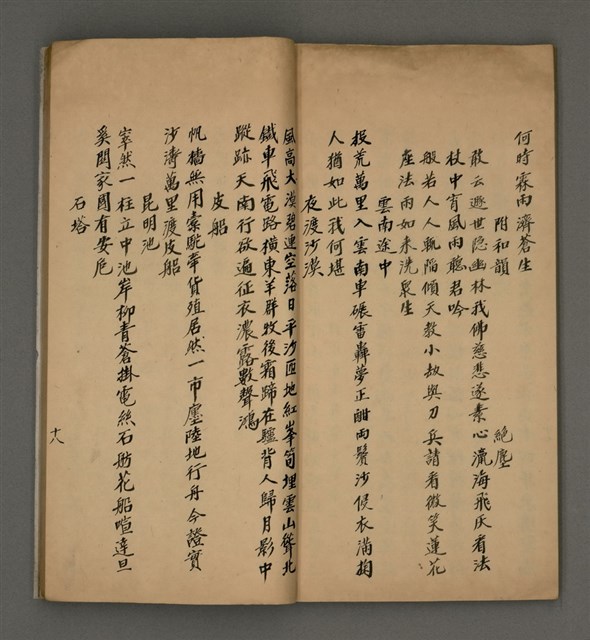 何時霖雨濟蒼生
附和韻　絕塵
敢云遯世隱幽林我佛慈悲遂素心瀛海飛灰看法
杖中宵風雨聽君吟
般若人人執偏傾天教小劫與刀兵請看微笑蓮花
座法雨如來洗眾生
雲南途中
投荒萬里入雲南車碾雷轟夢正酣兩鬢沙侵衣滿掬
人猶如此我何堪
夜渡沙漠
風高大漠碧連空落日平沙匝地紅峯筍埋雲山聳北
鐵車飛電路橫東羊群牧後霜蹄在驢背人歸月影中
蹤跡天南行欲遍征衣濃露數聲鴻
皮船
帆檣無用索駝牽貨殖居然一市廛陸地行舟今證實
沙濤萬里渡皮船
昆明池
崒然一柱立中池岸柳青蒼掛電絲石舫花船喧達旦
奚關家國有安危
石塔
十八